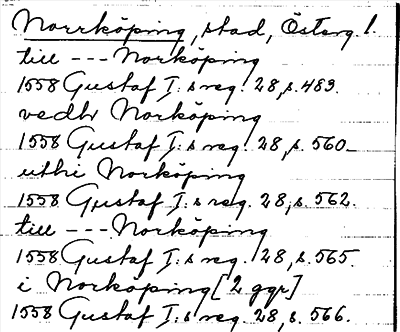 Norrköping, stad, Österg. l.
till --- Norköping
1558 Gustaf I:s reg. 28, s. 483.
vedh Norköping
1558 Gustaf I:s reg. 28, s. 560.
uthi Norköping
1558 Gustaf I:s reg. 28, s. 562.
till --- Norköping
1558 Gustaf I:s reg. 28, s. 565.
i Norköping [2 ggr]
1558 Gustaf I:s reg. 28, s. 566.